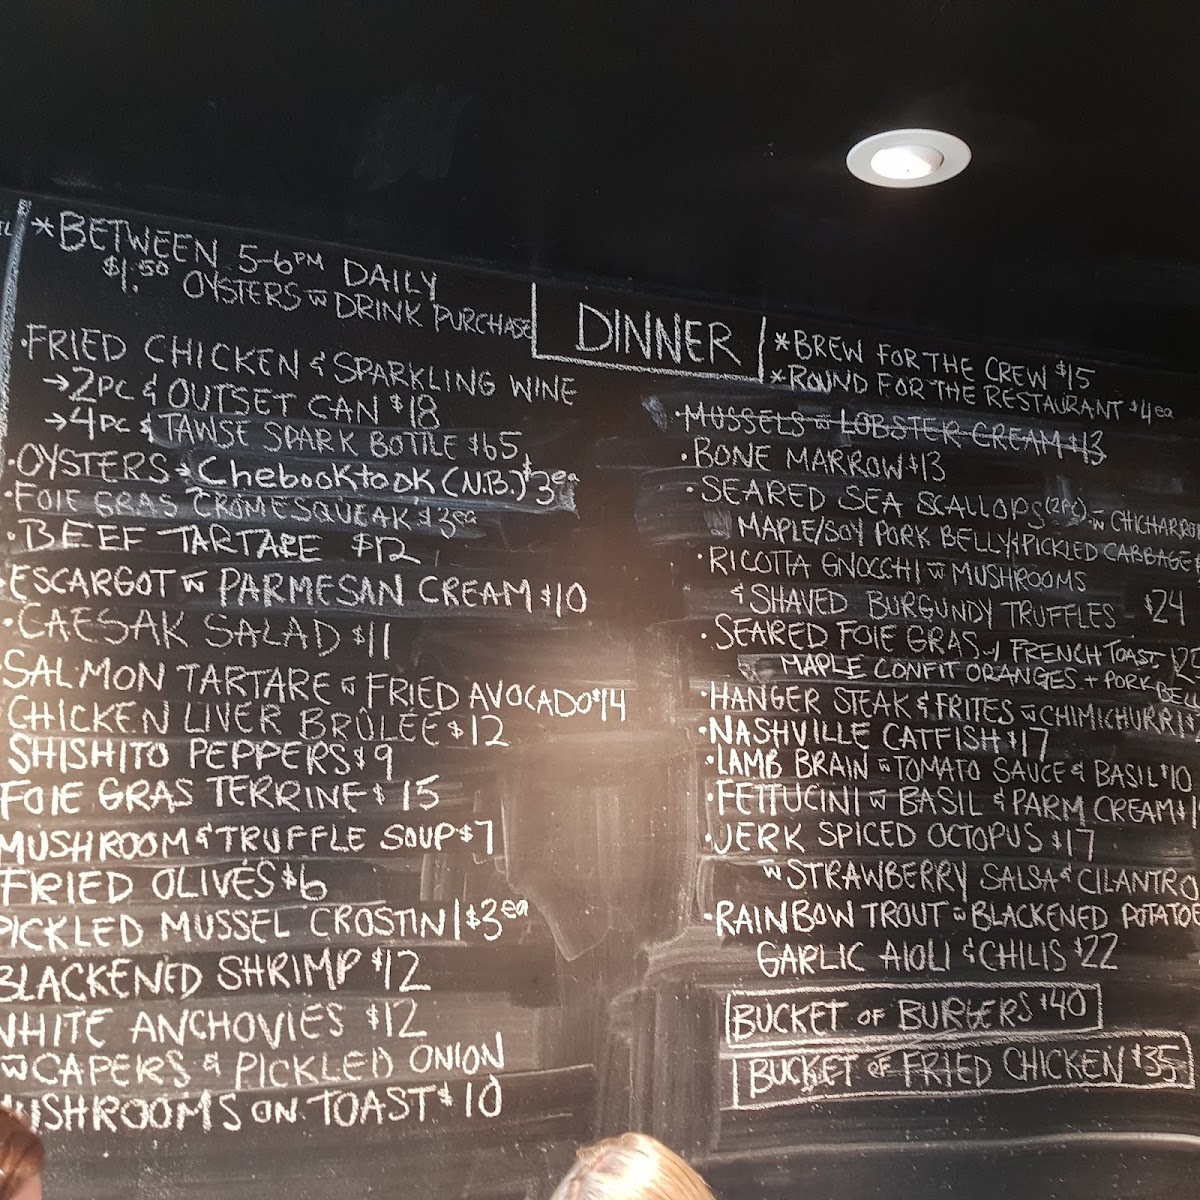 *BETWEEN 5-6PM DAILY
$1.50 OYSTERS w DRINK PURCHASE
·FRIED CHICKEN & SPARKLING WINE
→2PC & OUTSET CAN $18
→4PC & TAWSE SPARK BOTTLE $65
·OYSTERS → Chebooktook (N.B.) $3ea
·FOIE GRAS CROMESQUEAK $3ea
·BEEF TARTARE $12
·ESCARGOT w PARMESAN CREAM $10
·CAESAK SALAD $11
·SALMON TARTARE w FRIED AVOCADO $14
·CHICKEN LIVER BRÛLÉE $12
SHISHITO PEPPERS $9
FOIE GRAS TERRINE $15
MUSHROOM & TRUFFLE SOUP $7
FRIED OLIVES $6
PICKLED MUSSEL CROSTINI $3ea
BLACKENED SHRIMP $12
WHITE ANCHOVIES $12
w CAPERS & PICKLED ONION
MUSHROOMS ON TOAST $10
DINNER
*BREW FOR THE CREW $15
*ROUND FOR THE RESTAURANT $4ea
·MUSSELS w LOBSTER CREAM $13
·BONE MARROW $13
·SEARED SEA SCALLOPS (2PC) w CHICHARRO
MAPLE/SOY PORK BELLY & PICKLED CABBAGE
·RICOTTA GNOCCHI w MUSHROOMS
& SHAVED BURGUNDY TRUFFLES - $24
·SEARED FOIE GRAS w/ FRENCH TOAST
MAPLE CONFIT ORANGES + PORK BEL
·HANGER STEAK & FRITES w CHIMICHURRI
·NASHVILLE CATFISH $17
·LAMB BRAIN w TOMATO SAUCE & BASIL $10
·FETTUCINI w BASIL & PARM CREAM
·JERK SPICED OCTOPUS $17
w STRAWBERRY SALSA & CILANTRO
·RAINBOW TROUT w BLACKENED POTATO
GARLIC AIOLI & CHILIS $22
BUCKET OF BURGERS $40
BUCKET OF FRIED CHICKEN $35